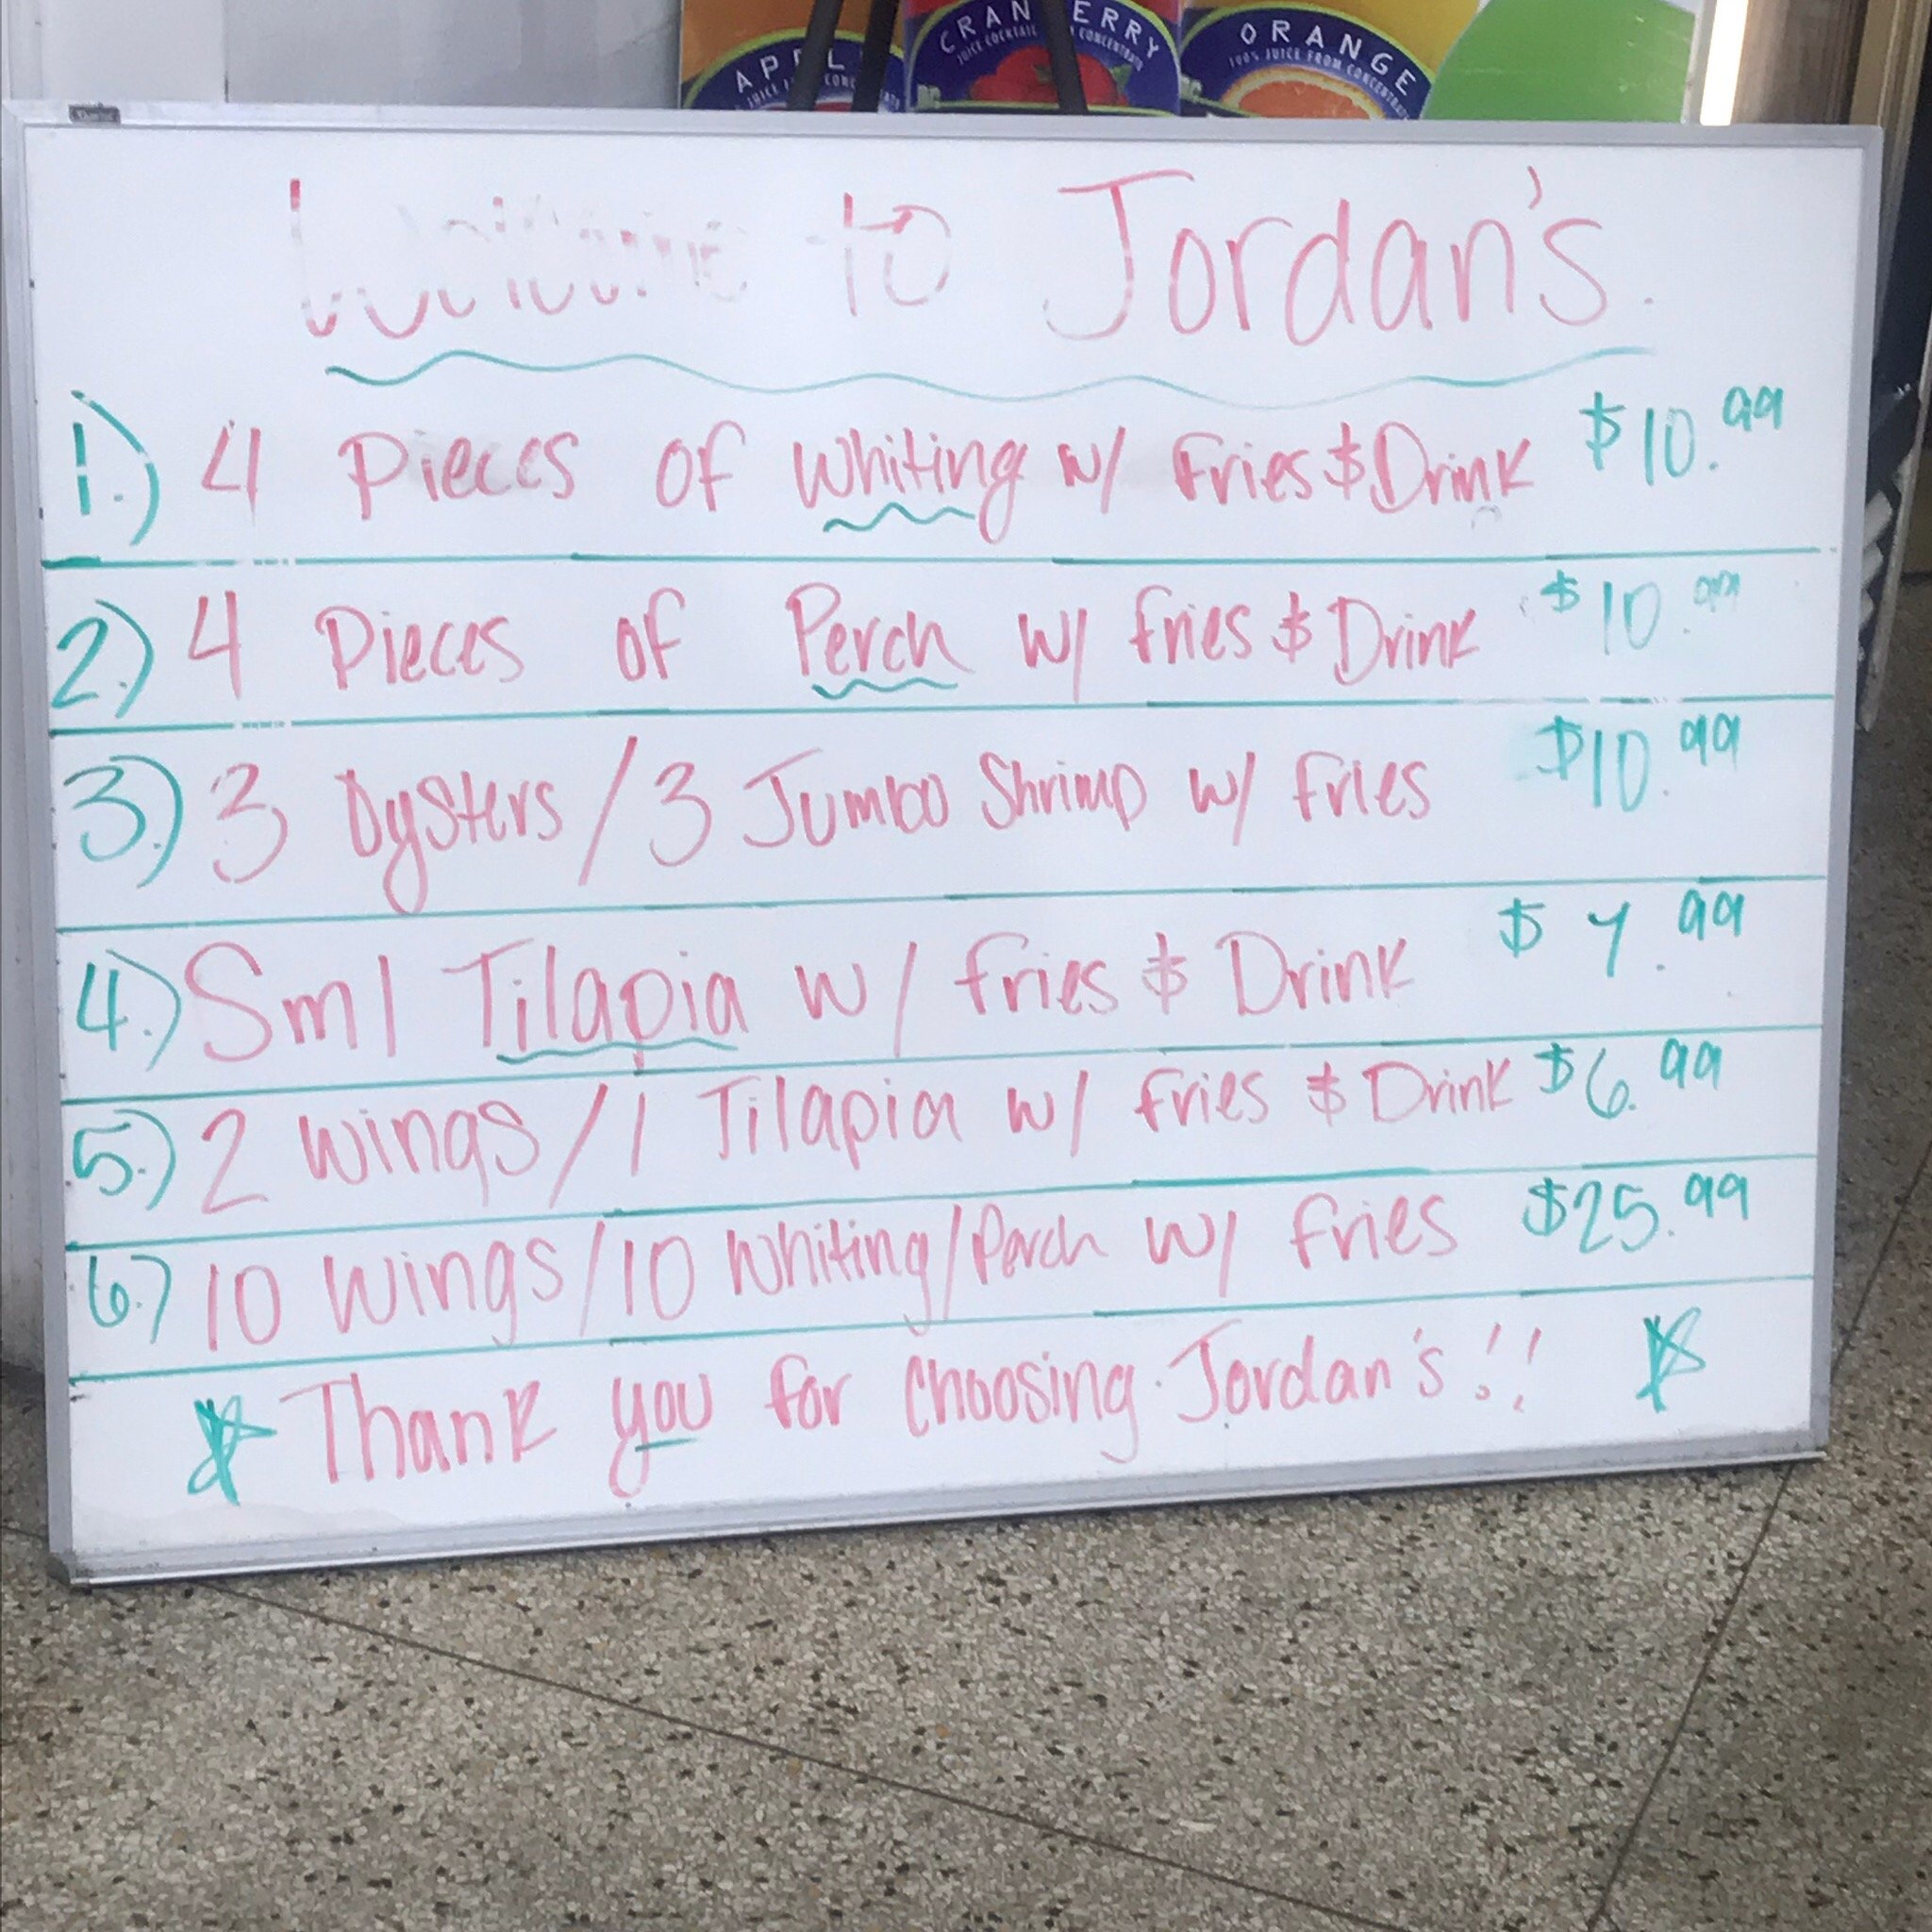 APPL
JUICE
CRAN ERRY
JUICE COCKTAIL CONCENTRATE
ORANGE
100% JUICE FROM CONCENTRATE
Welcome to Jordan's.
1.) 4 Pieces of Whiting w/ Fries & Drink $10.99
2.) 4 Pieces of Perch w/ fries & Drink $10.99
3.) 3 Oysters/3 Jumbo Shrimp w/ fries $10.99
4.) Sml Tilapia w/ fries & Drink $ 7.99
5.) 2 wings/1 Tilapia w/ fries & Drink $6.99
6.) 10 Wings/10 Whiting/Perch w/ fries $25.99
Thank you for choosing Jordan's!!